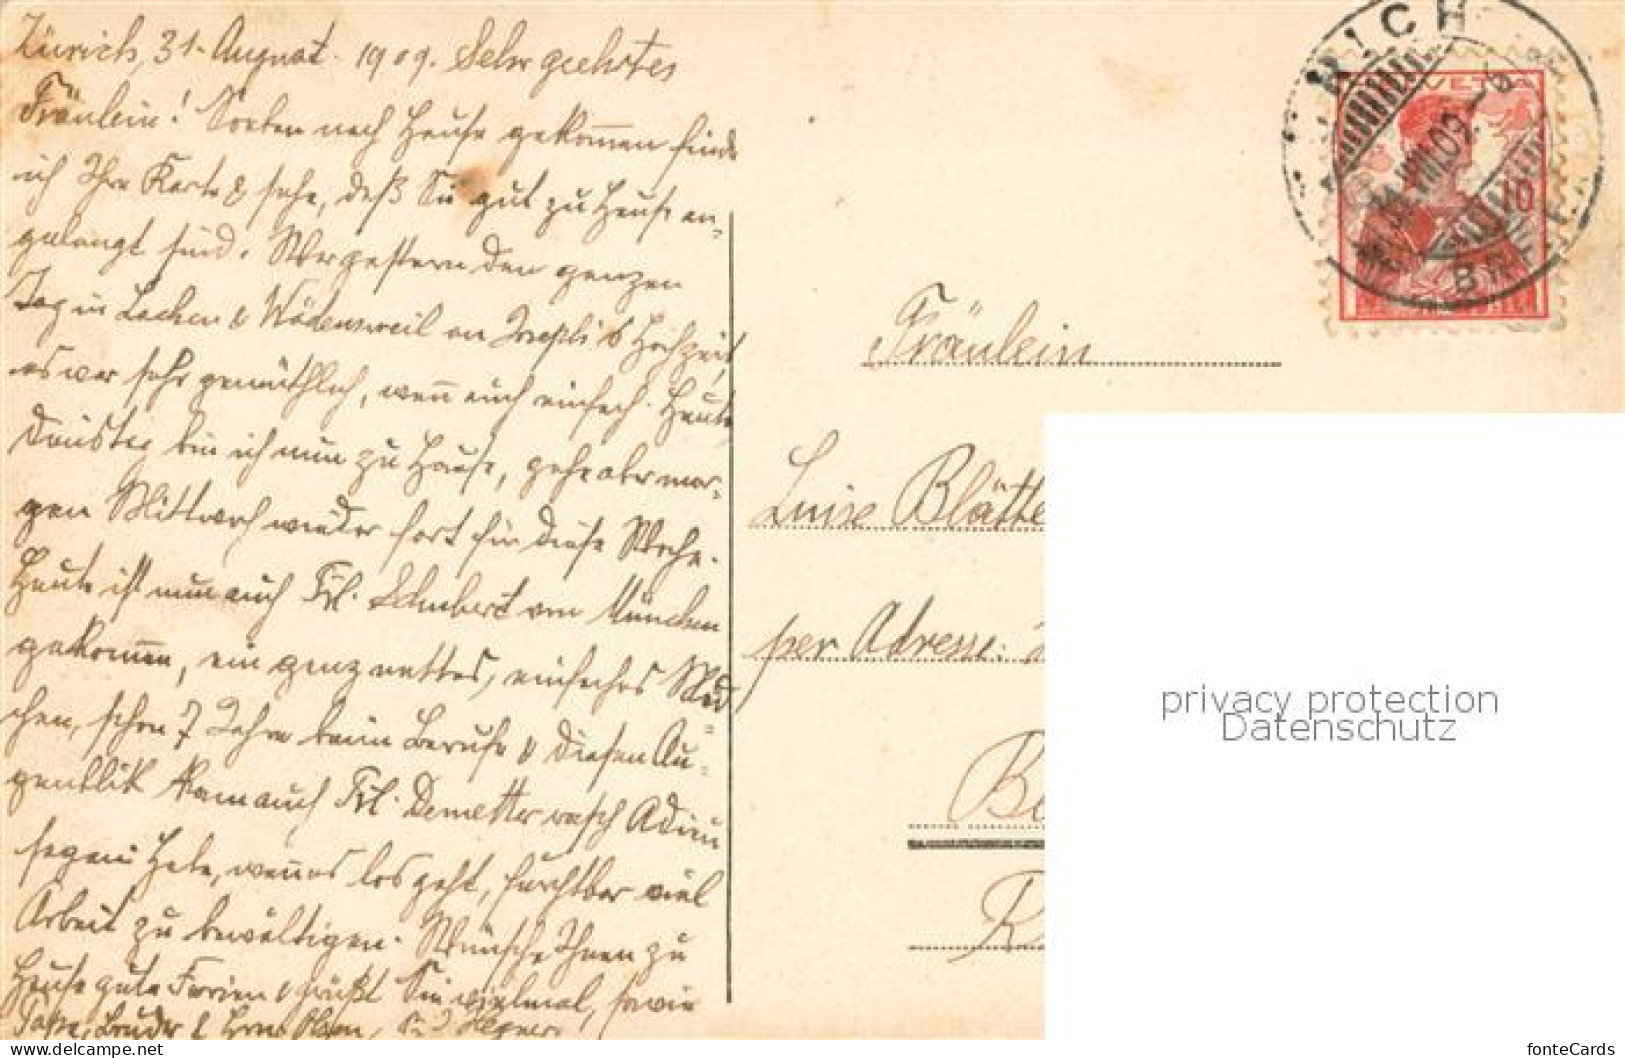 Zürich, 31. August 1909. Sehr geehrtes
Fräulein! Soeben nach Hause gekommen finde
ich Ihre Karte & sehe, daß Sie gut zu Hause an-
gelangt sind. War gestern den ganzen
Tag in Lachen & Wädensweil an Josephi's Hochzeit,
es war sehr gemüthlich, wenn auch einfach. Heute
Dienstag bin ich nun zu Hause, gehe aber mor-
gen Mittwoch wieder fort für diese Woche.
Heute ist nun auch Frl. Schubert von München
gekommen, ein ganz nettes, einfaches Mäd-
chen, schon 7 Jahre beim Berufe & diesen Au-
genblik kam auch Frl. Demetter rasch Adieu
sagen. Habe, wenn es los geht, furchtbar viel
Arbeit zu bewältigen. Wünsche Ihnen zu
Hause gute Ferien & grüßt Sie vielmal, sowie
Bruder & Hegner
ZÜRICH
HELVETIA
31.VIII.09.
10
BRIEF
Fräulein
Luise Blätte
per Adresse:
privacy protection
Datenschutz
the postcard seller online
fonteCards